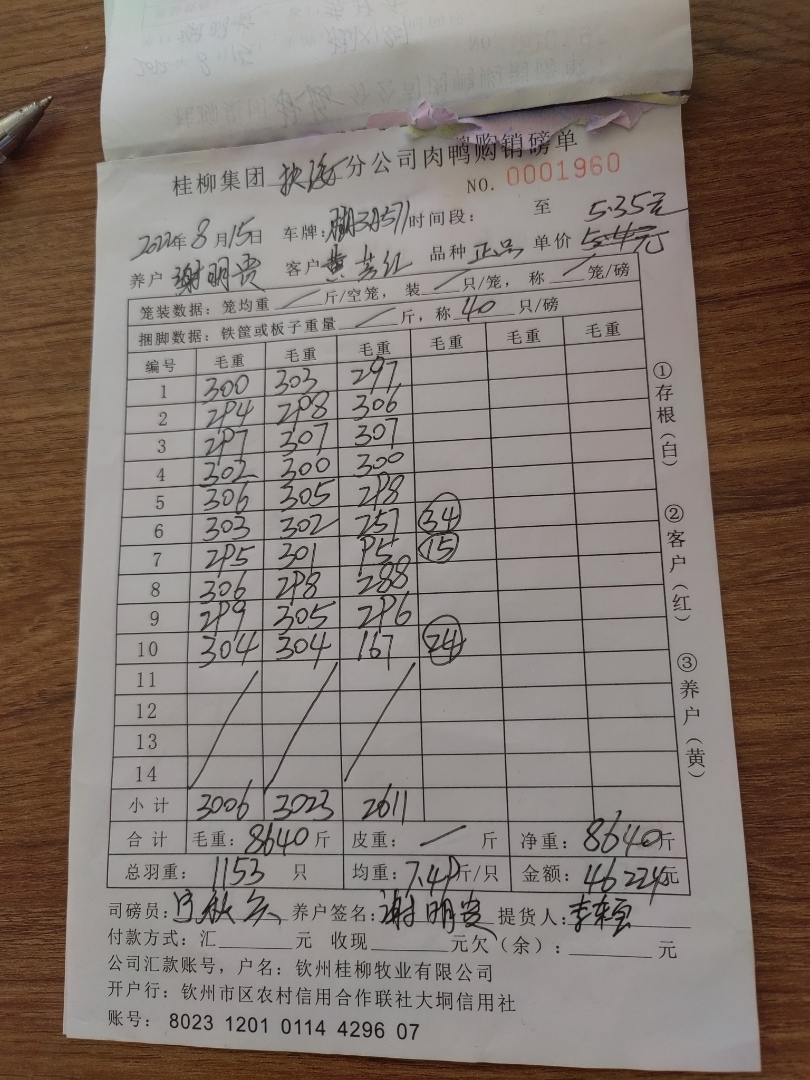 桂柳集团 扶绥 分公司肉鸭购销磅单
NO. 0001960
2022年8月15日 车牌: 时间段: 至 5.35元
养户 谢明贵 客户 黄 红 品种 正品 单价 5.4元
笼装数据: 笼均重 / 斤/空笼, 装 / 只/笼, 称 / 笼/磅
捆脚数据: 铁筐或板子重量 / 斤, 称 40 只/磅
编号 毛重 毛重 毛重 毛重 毛重 毛重
1 300 303 297
2 294 298 306
3 297 307 307
4 302 300 300
5 306 305 298
6 303 302 257 34
7 295 301 95 15
8 306 298 288
9 299 305 296
10 304 304 167 24
11
12
13
14
小计 3006 3023 2611
合计 毛重: 8640 斤 皮重: / 斤 净重: 8640 斤
总羽重: 1153 只 均重: 7.49 斤/只 金额: 46224元
司磅员: 养户签名: 谢明贵 提货人: 李
付款方式: 汇 元 收现 元欠(余): 元
公司汇款账号, 户名: 钦州桂柳牧业有限公司
开户行: 钦州市区农村信用合作联社大垌信用社
账号: 8023 1201 0114 4296 07
①存根(白)
②客户(红)
③养户(黄)